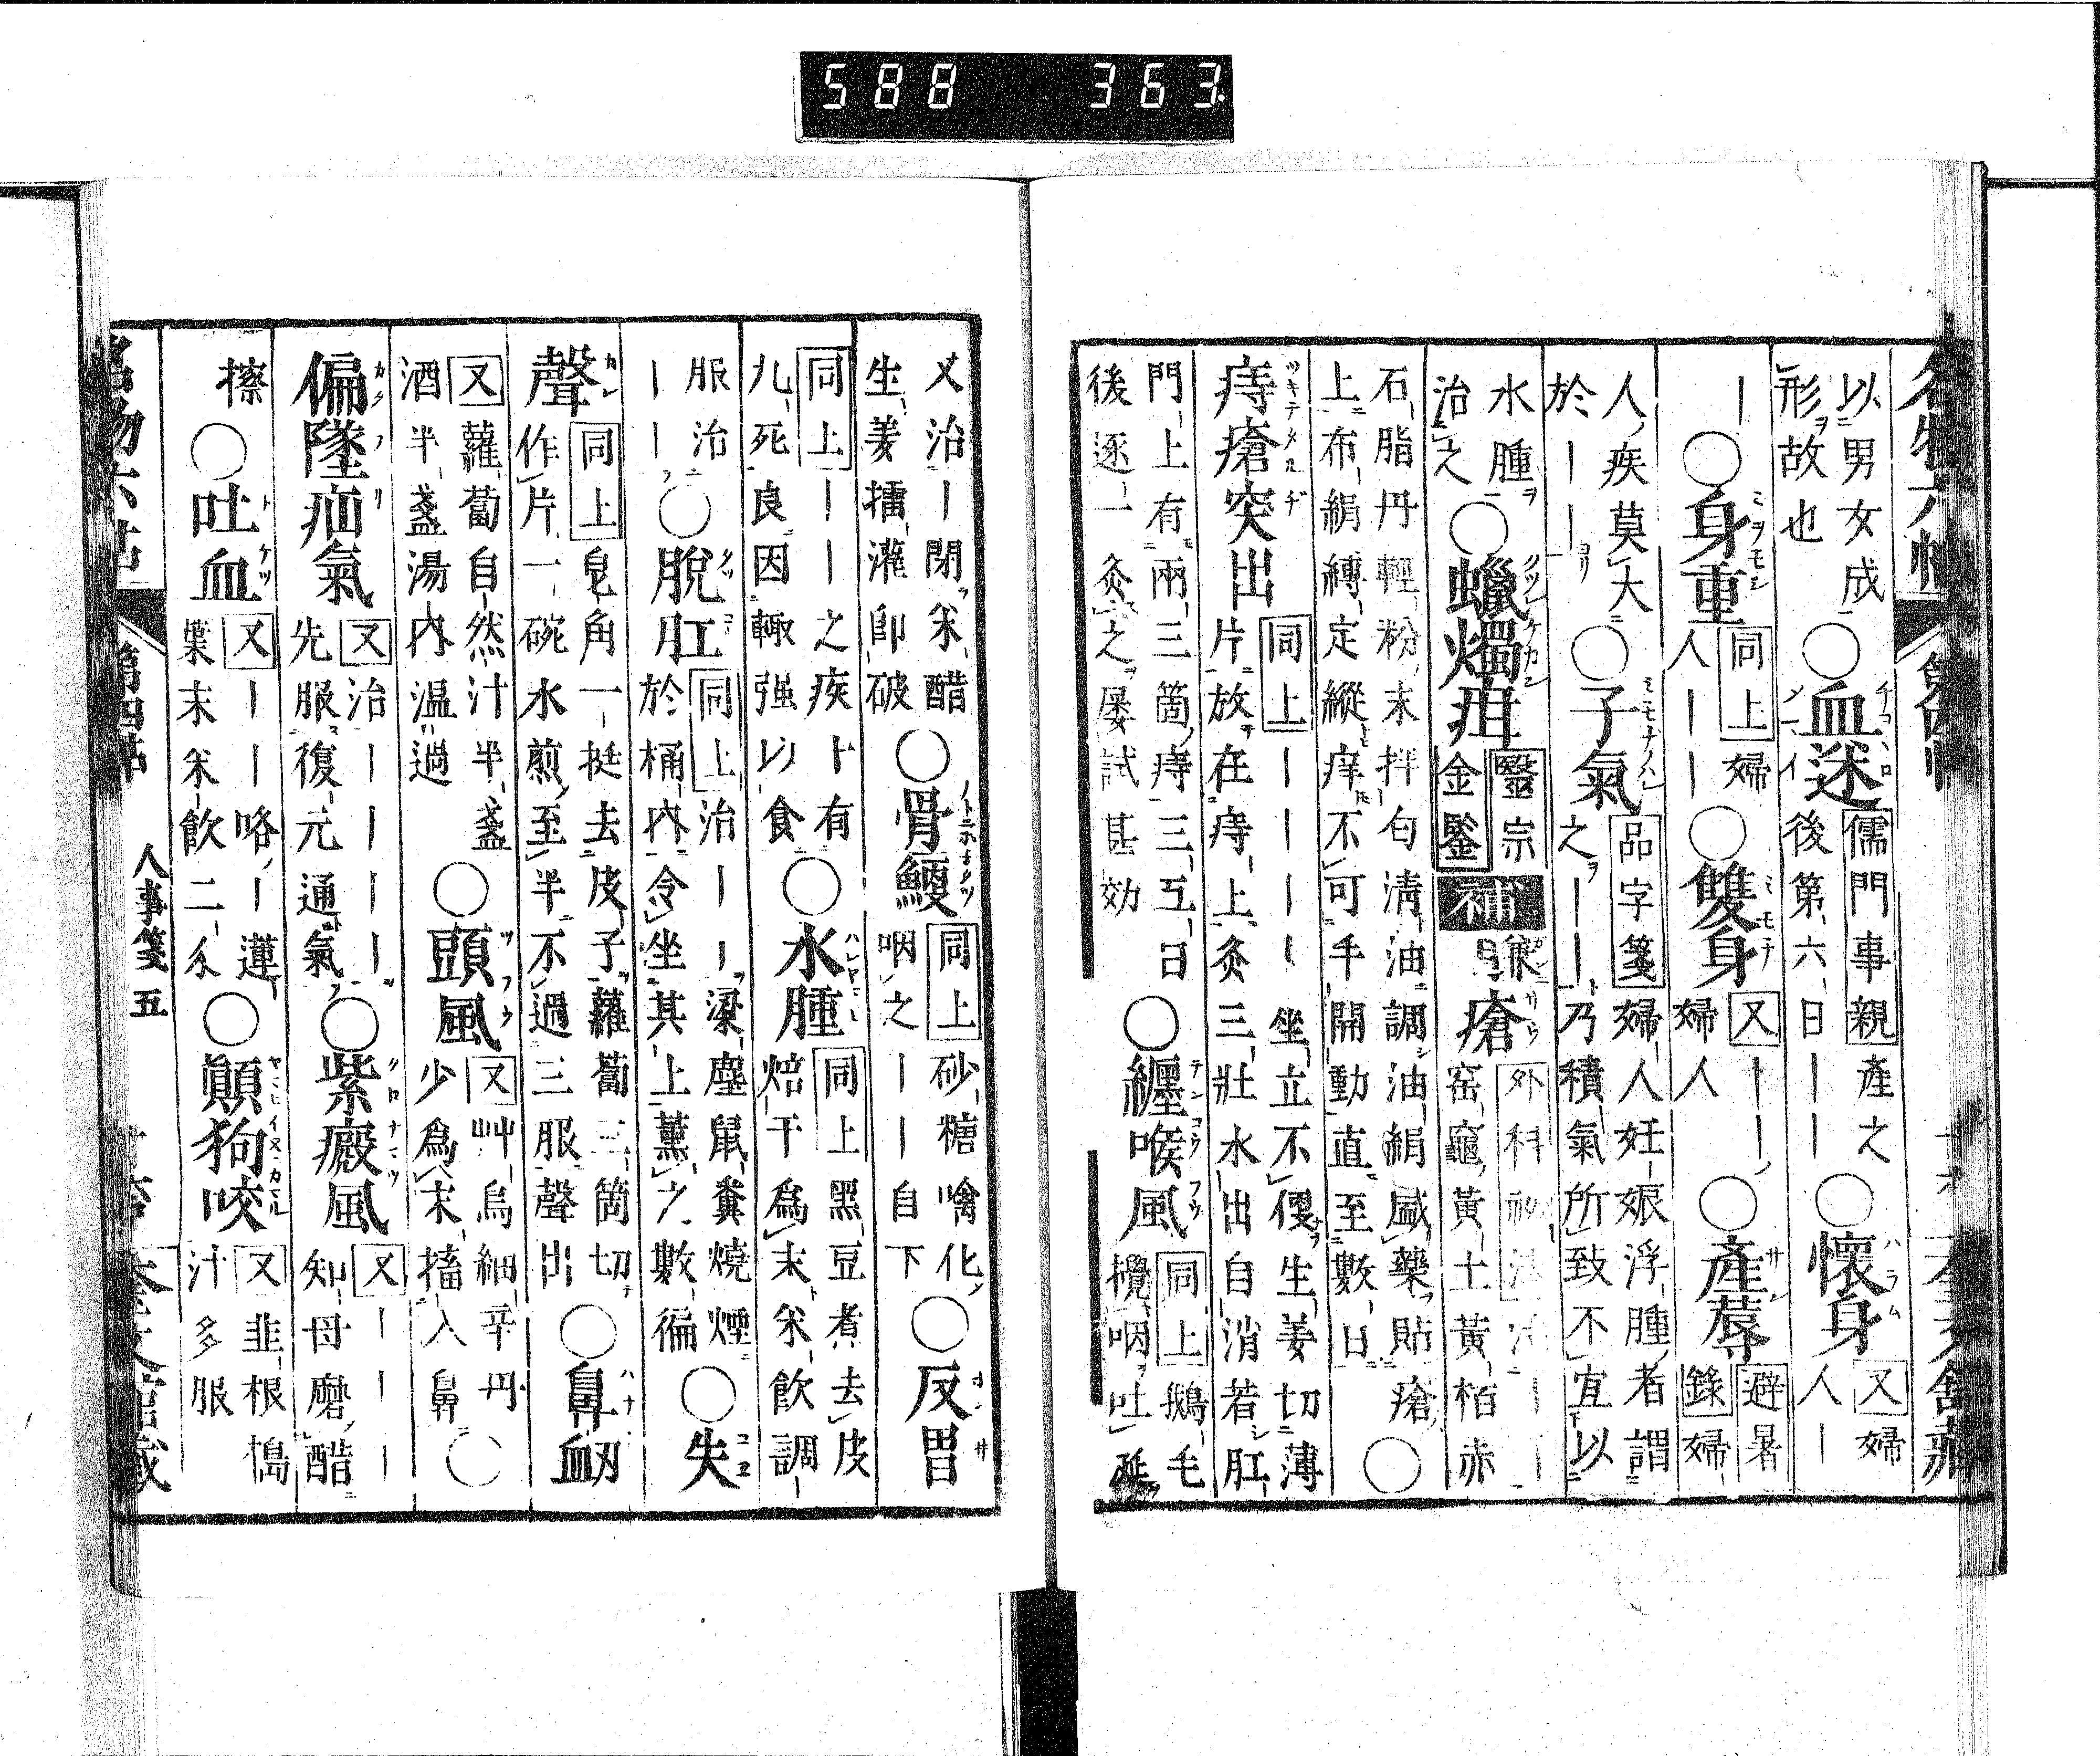 588 363
以男女成
形故也
○血迷 儒門事親 產之
後第六日｜｜
○懷身 又 婦
人｜
｜○身重 同上 婦
人｜｜
○雙身 又｜｜
婦人
○產蓐 避暑
錄 婦
人疾莫大
於｜｜
○子氣 品字箋 婦人妊娠浮腫者謂
之｜｜乃積氣所致不宜以
水腫
治之
○蠟燭疳 醫宗
金鑒
補 臁瘡 外科
窑竈黃土黃栢赤
石脂丹輕粉末拌匀清油調油絹盛藥貼瘡
上布絹縛定縱痒不可手開動直至數日
○
痔瘡突出 同上｜｜｜｜坐立不便生姜切薄
片放在痔上灸三壯水出自消若肛
門上有兩三箇痔三五日
後逐一灸之屡試甚効
○纏喉風 同上 鵝毛
攪咽吐
又治｜閉米醋
生姜擂灌卽破
○骨鯁 同上 砂糖噙化
咽之｜｜自下
○反胃
同上｜｜之疾卜有
九死良因輙强以食
○水腫 同上 黑豆煮去皮
焙干為末米飲調
服治
｜｜
○脫肛 同上 治｜｜梁塵鼠糞燒煙
於桶內令坐其上薰之數徧
○失
聲 同上 皂角一挺去皮子蘿蔔三箇切
作片一碗水煎至半不過三服聲出
○鼻衂
又 蘿蔔自然汁半盞
酒半盞湯內温過
○頭風 又 艸烏細辛丹
少為末搐入鼻
○
偏墜疝氣 又 治｜｜｜｜
先服復元通氣
○紫癜風 又｜｜｜
知母磨醋
擦
○吐血 又｜｜咯｜蓮
葉末米飲二
○顛狗咬 又 韭根搗
汁多服
人事箋 五